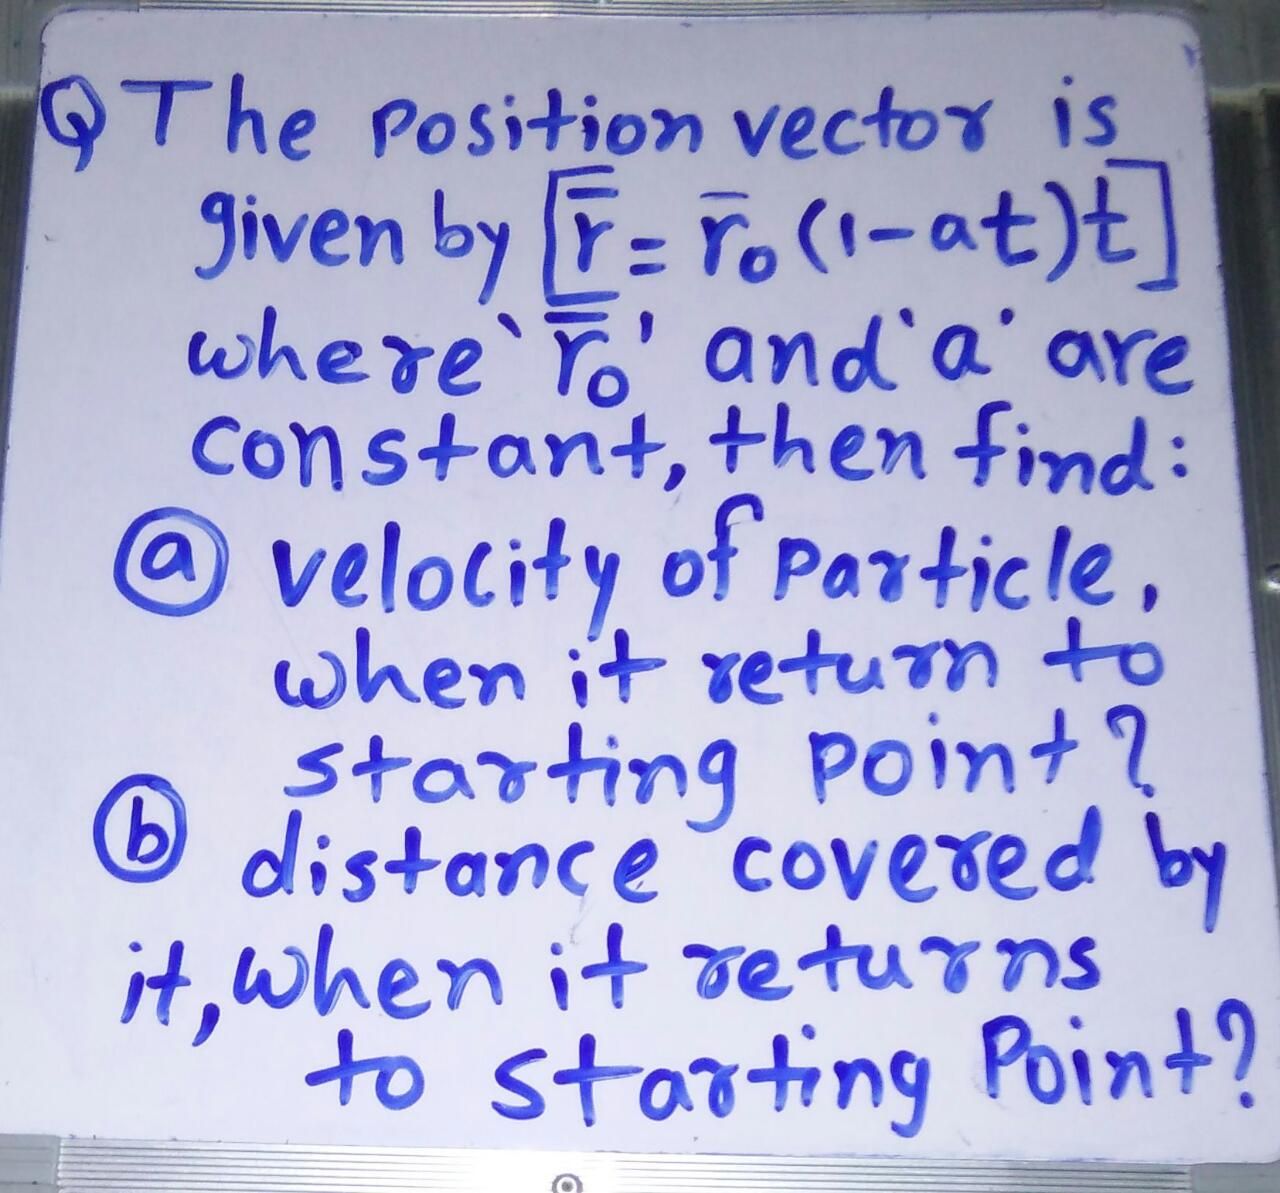 Q The position vector is
given by [r̄ = r̄₀(1-at)t]
where 'r̄₀' and 'a' are
constant, then find:
ⓐ velocity of particle,
when it return to
starting point?
ⓑ distance covered by
it, when it returns
to starting Point?